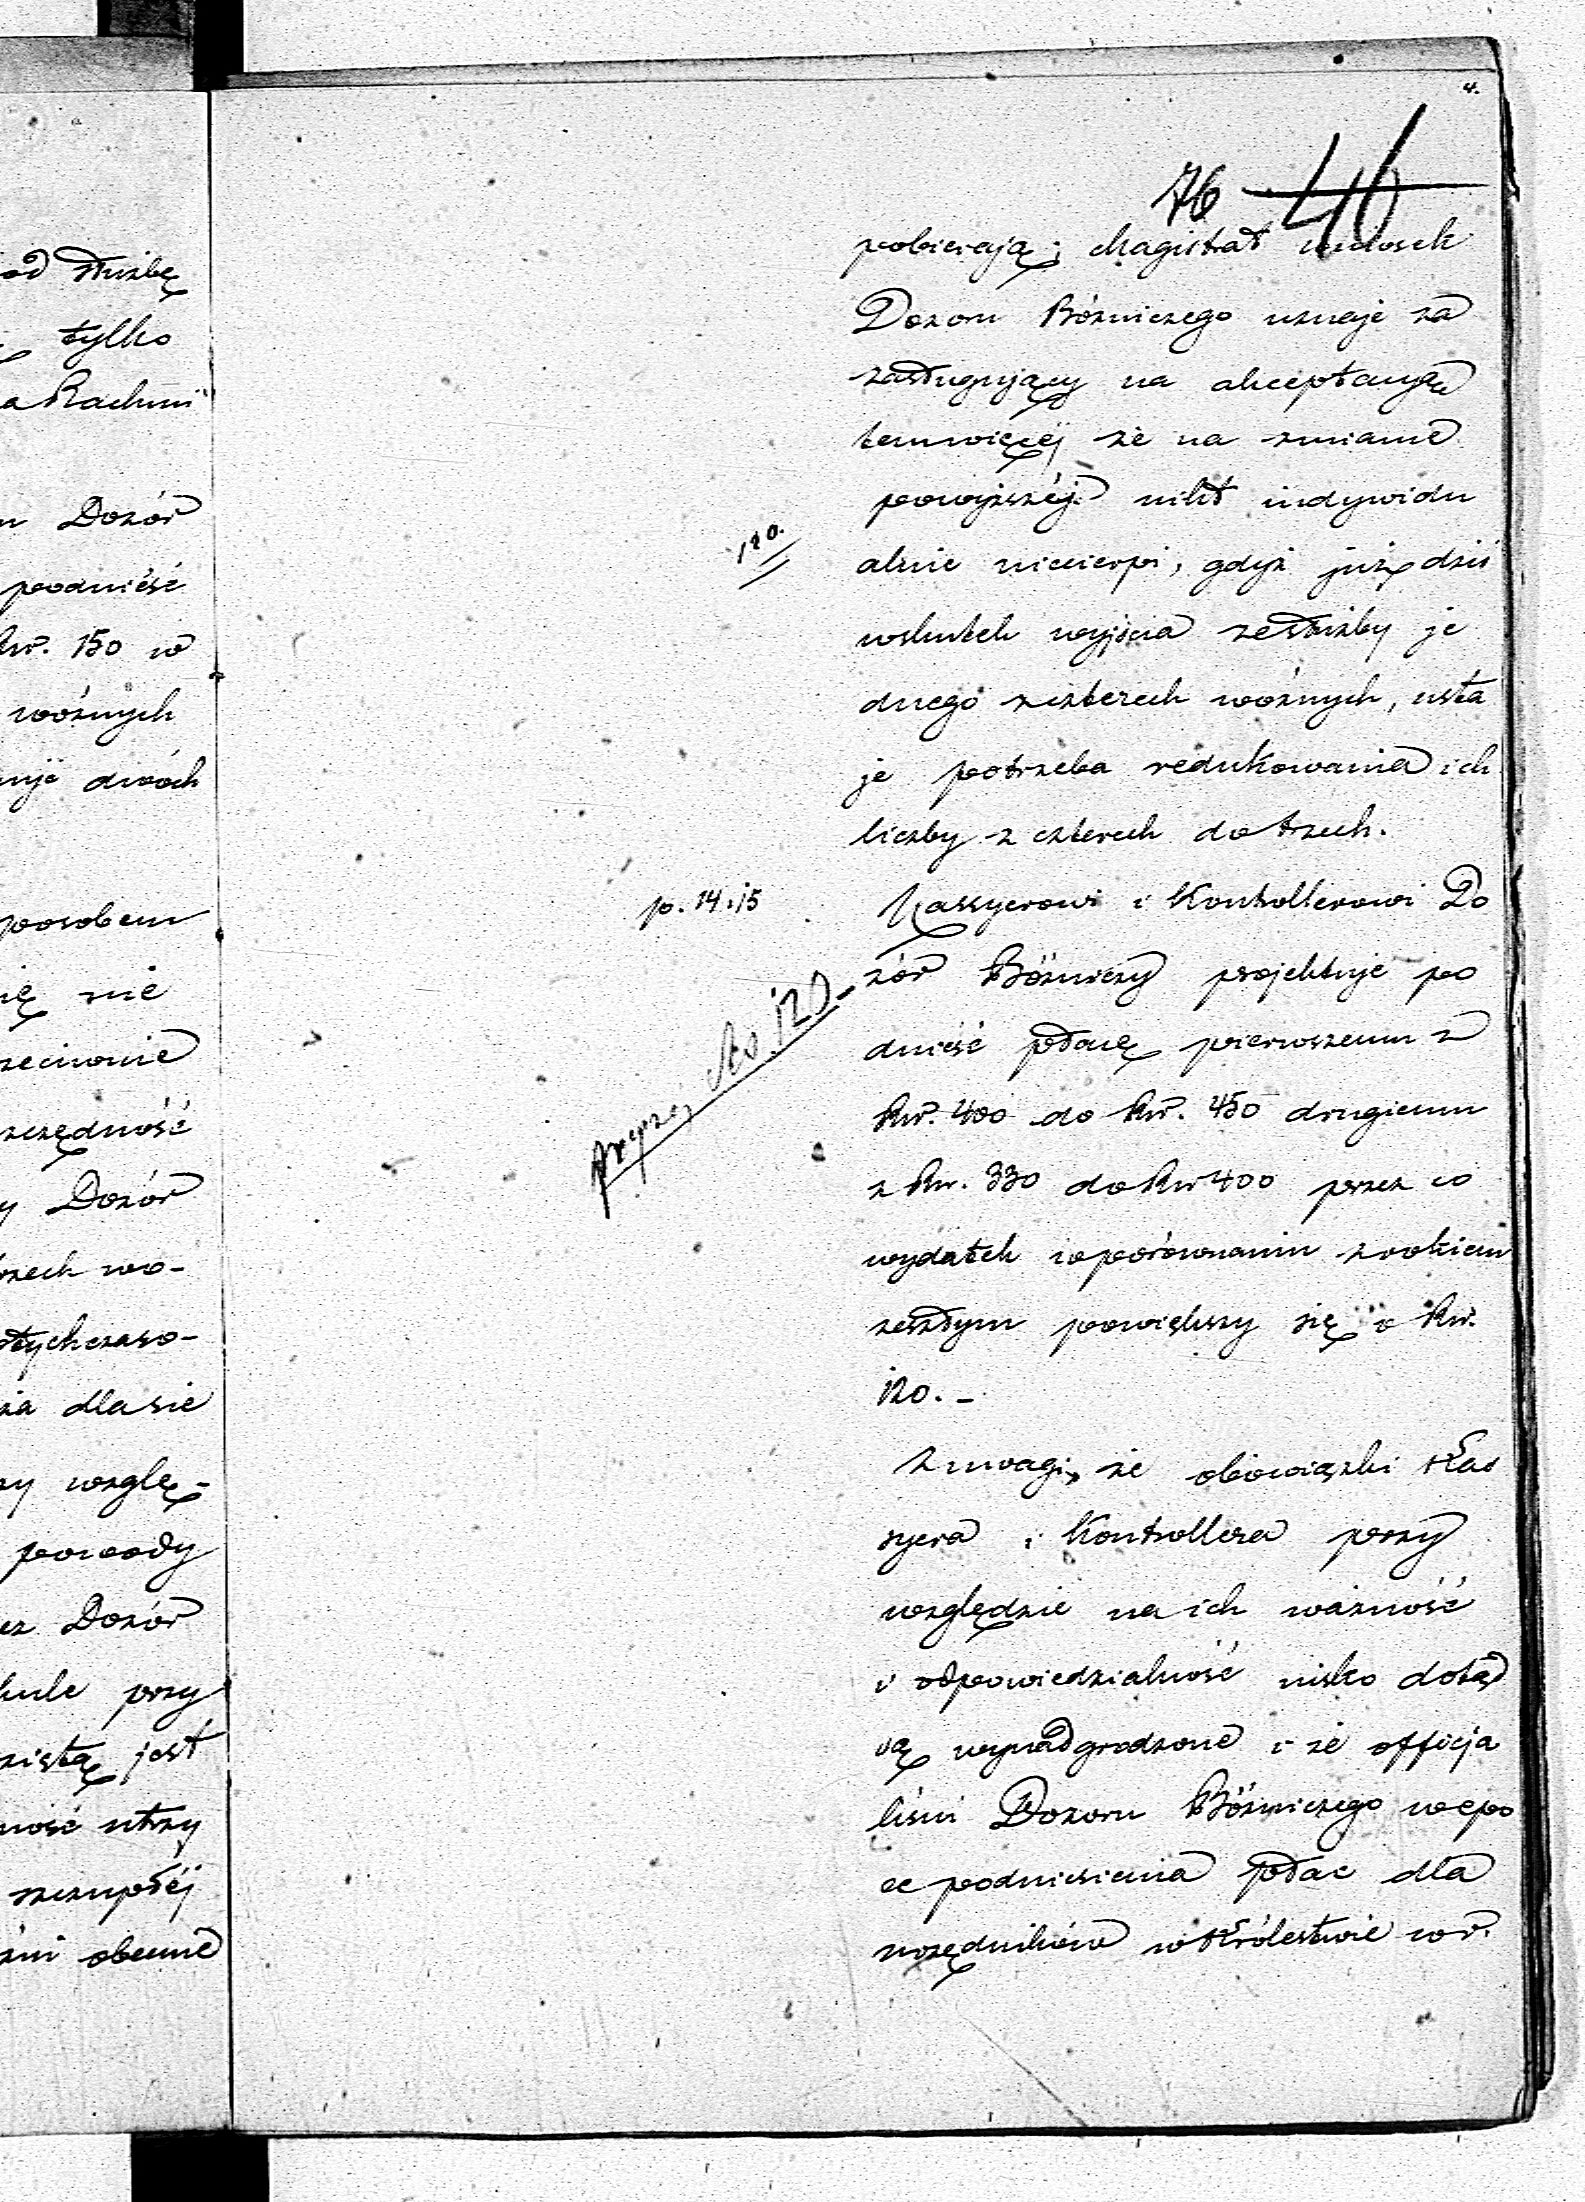 od służbę
tylko
a Rachmi
Dozór
podnieść
Rsr. 150 w
woźnych
dwóch
posobem
ię nie
zeciwnie
szczędność
y Dozór
trzech wo-
otychczaso-
dla sie
zy wzglę-
powody
ez Dozór
przy
zistą jest
ność utrzy
szczupłéj
obecne
4.
76 46
pobierają; Magistrat wniosek
Dozoru Bóżniczego uznaje za
zasługujący na akceptacyą
temwięcéj że na zmianie
powyższéj nikt indywidu
120.
alnie niecierpi, gdyż już dziś
wskutek wyjścia ze służby je
dnego z czterech woźnych, usta
je potrzeba redukowania ich
liczby z czterech do trzech.
p. 14. i 15
Kassyerowi i Kontrollerowi Do
zór Bóżniczy projektuje po
dnieść płacę pierwszemu z
przyzn. Rs. 120 -
Rsr. 400 do Rsr. 450 drugiemu
z Rsr. 330 do Rsr 400 przez co
wydatek w porównaniu z rokiem
zeszłym powiększy się o Rsr.
120. -
Z uwagi, że obowiązki Kas
syera i Kontrollera przy
względzie na ich ważność
i odpowiedzialność nisko dotąd
są wynadgrodzone i że officja
liści Dozoru Bóżniczego w epo
ce podniesienia płac dla
urzędników w Królestwie w r.